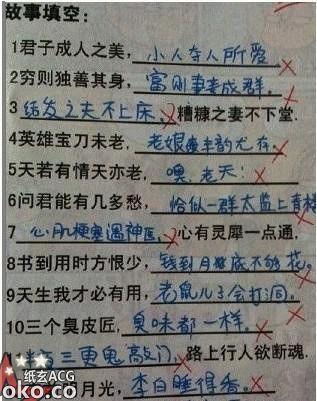 故事填空：
1君子成人之美，小人夺人所爱
2穷则独善其身，富则妻妾成群。
3结发之夫不上床，糟糠之妻不下堂.
4英雄宝刀未老，老娘风韵尤存。
5天若有情天亦老，噢，老天！
6问君能有几多愁，恰似一群太监上青楼
7心肌梗塞遇神医，心有灵犀一点通，
8书到用时方恨少，钱到月底不够花。
9天生我才必有用，老鼠儿子会打洞。
10三个臭皮匠，臭味都一样。
半夜三更鬼敲门，路上行人欲断魂.
月光，李白睡得香。
纸玄ACG
oko.co